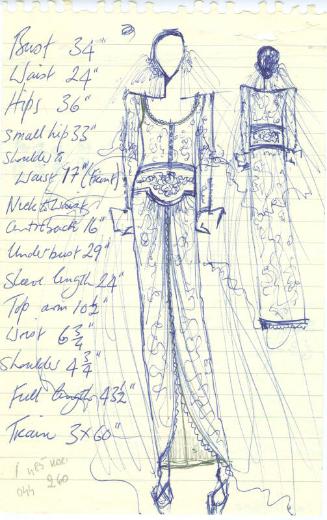 Bust 34"
Waist 24"
Hips 36"
Small hip 33"
Shoulder to
Waist 17" (Front)
Neck to Waist
centre back 16"
Underbust 29"
Sleeve length 24"
Top arm 10½"
Wrist 6¾"
Shoulder 4¾"
Full length 43½"
Train 3x60"
044 260